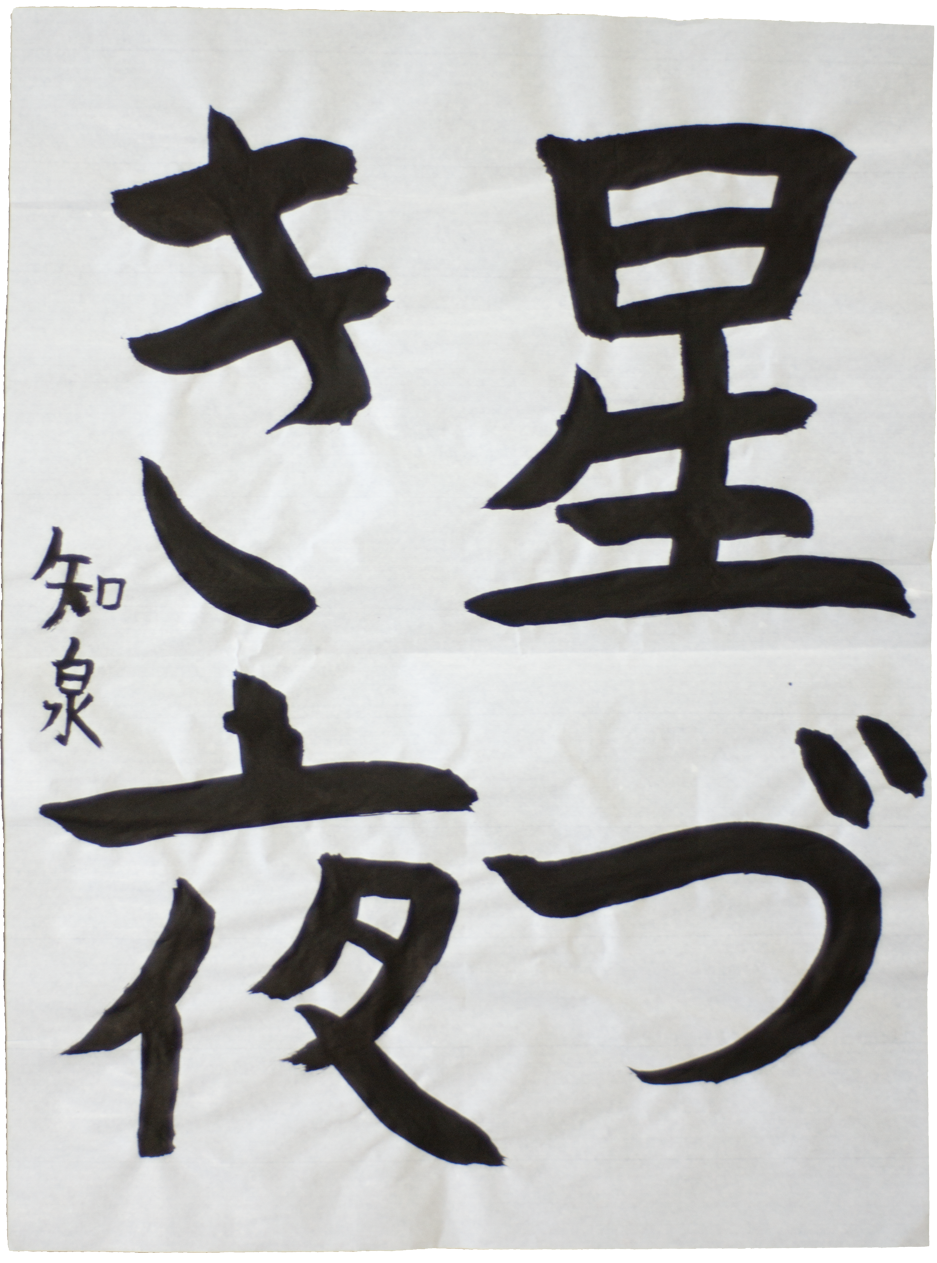 星づ
き夜
知泉